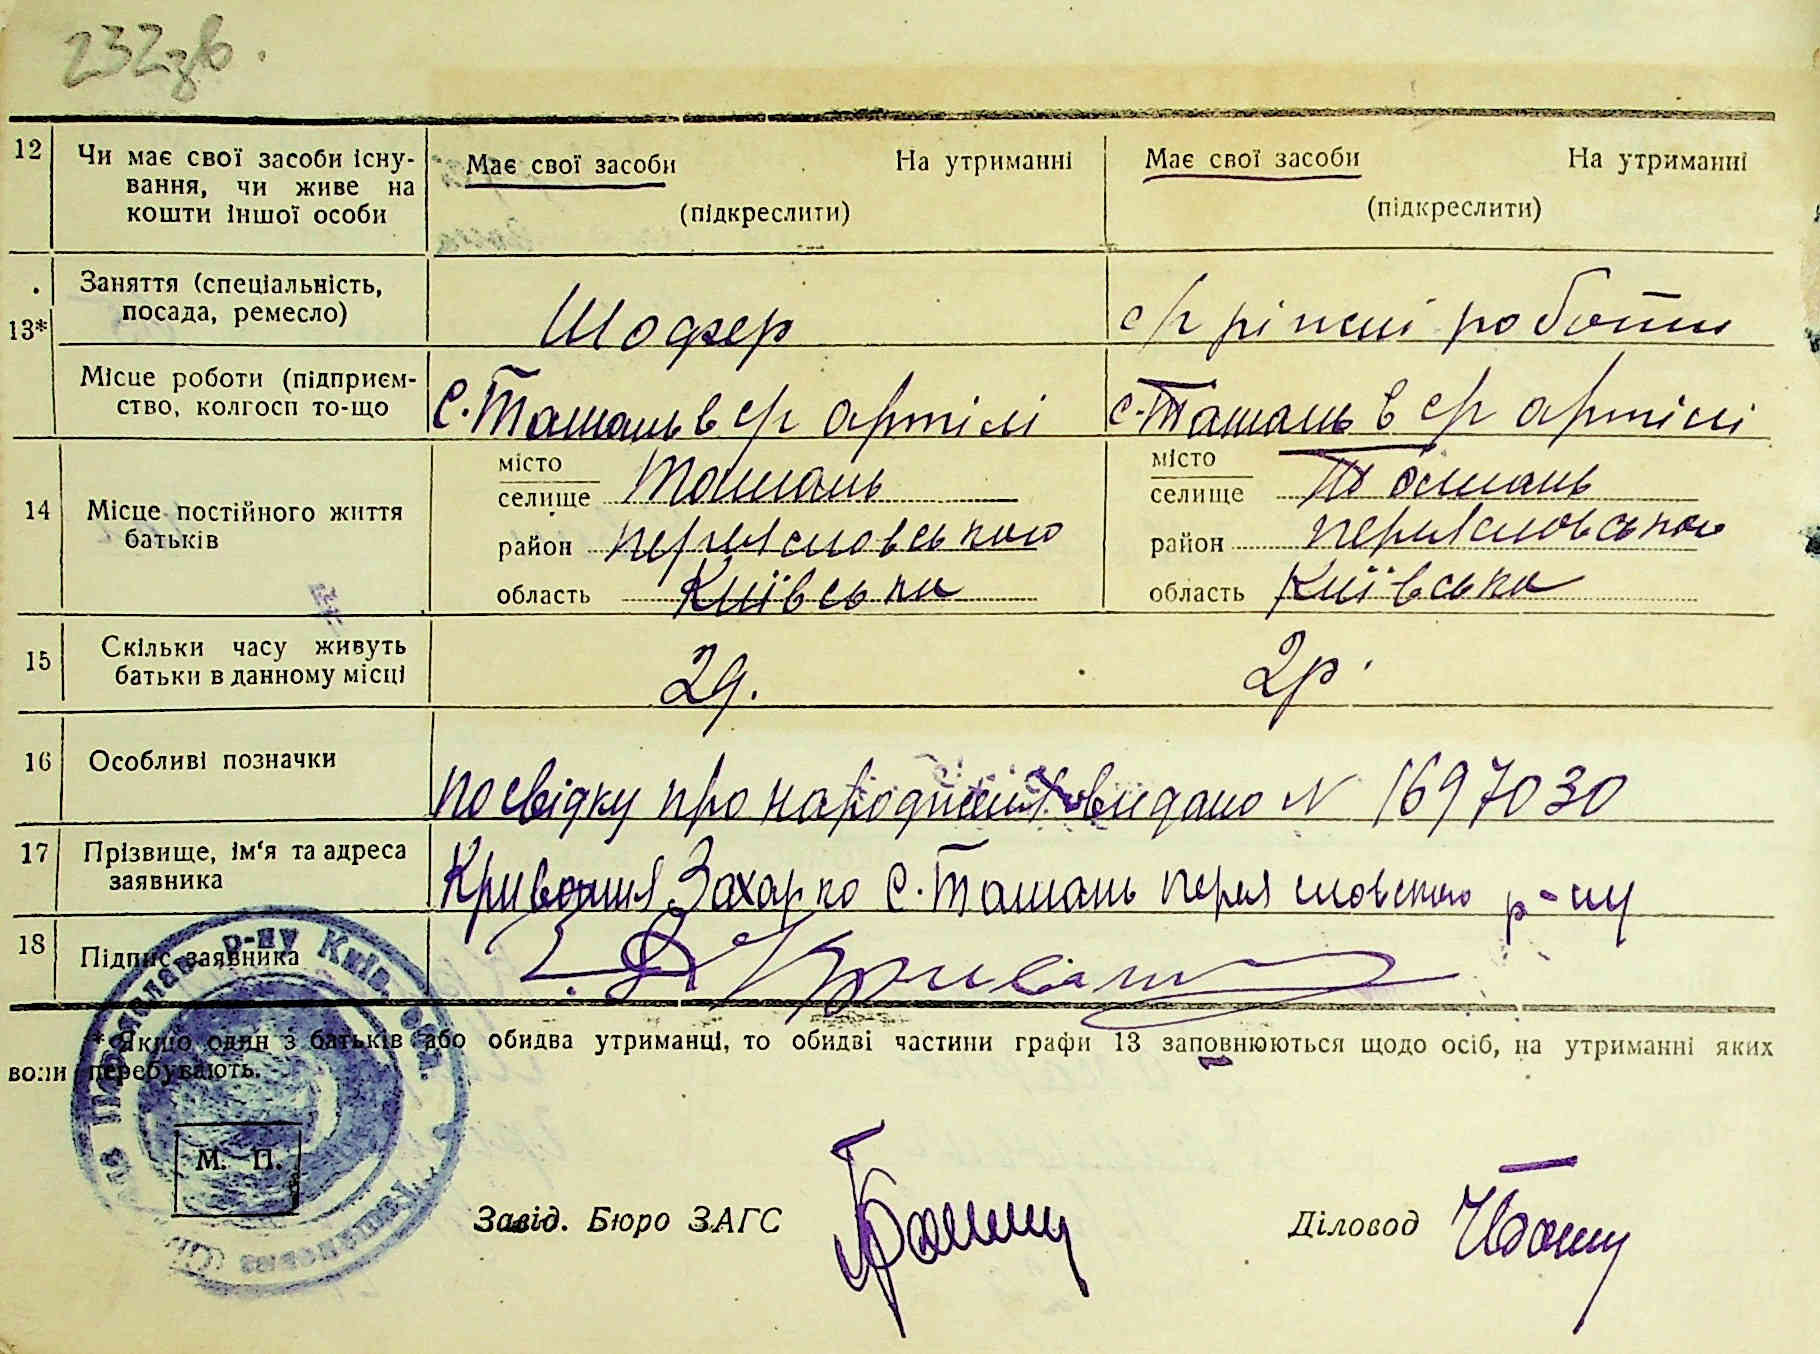 232зв.
12 Чи має свої засоби існу- Має свої засоби На утриманні Має свої засоби На утриманні
вання, чи живе на
кошти іншої особи (підкреслити) (підкреслити)
Заняття (спеціальність,
посада, ремесло) Шофер с/г ріжні роботи
13*
Місце роботи (підприєм-
ство, колгосп то-що С. Ташань в с/г артілі с. Ташань в с/г артілі
місто місто
селище Ташань селище Ташань
14 Місце постійного життя
батьків район Переясловського район Переясловського
область Київська область Київська
15 Скільки часу живуть
батьки в данному місці 2р. 2р.
16 Особливі позначки посвідку про народження видано N 1697030
17 Прізвище, ім'я та адреса
заявника Захарко С. Ташань Переясловского р-ну
18 Підпис заявника
* Якщо один з батьків або обидва утриманці, то обидві частини графи 13 заповнюються щодо осіб, на утриманні яких
вони перебувають.
р-ну Київ. обл.
М. П.
Завід. Бюро ЗАГС Діловод